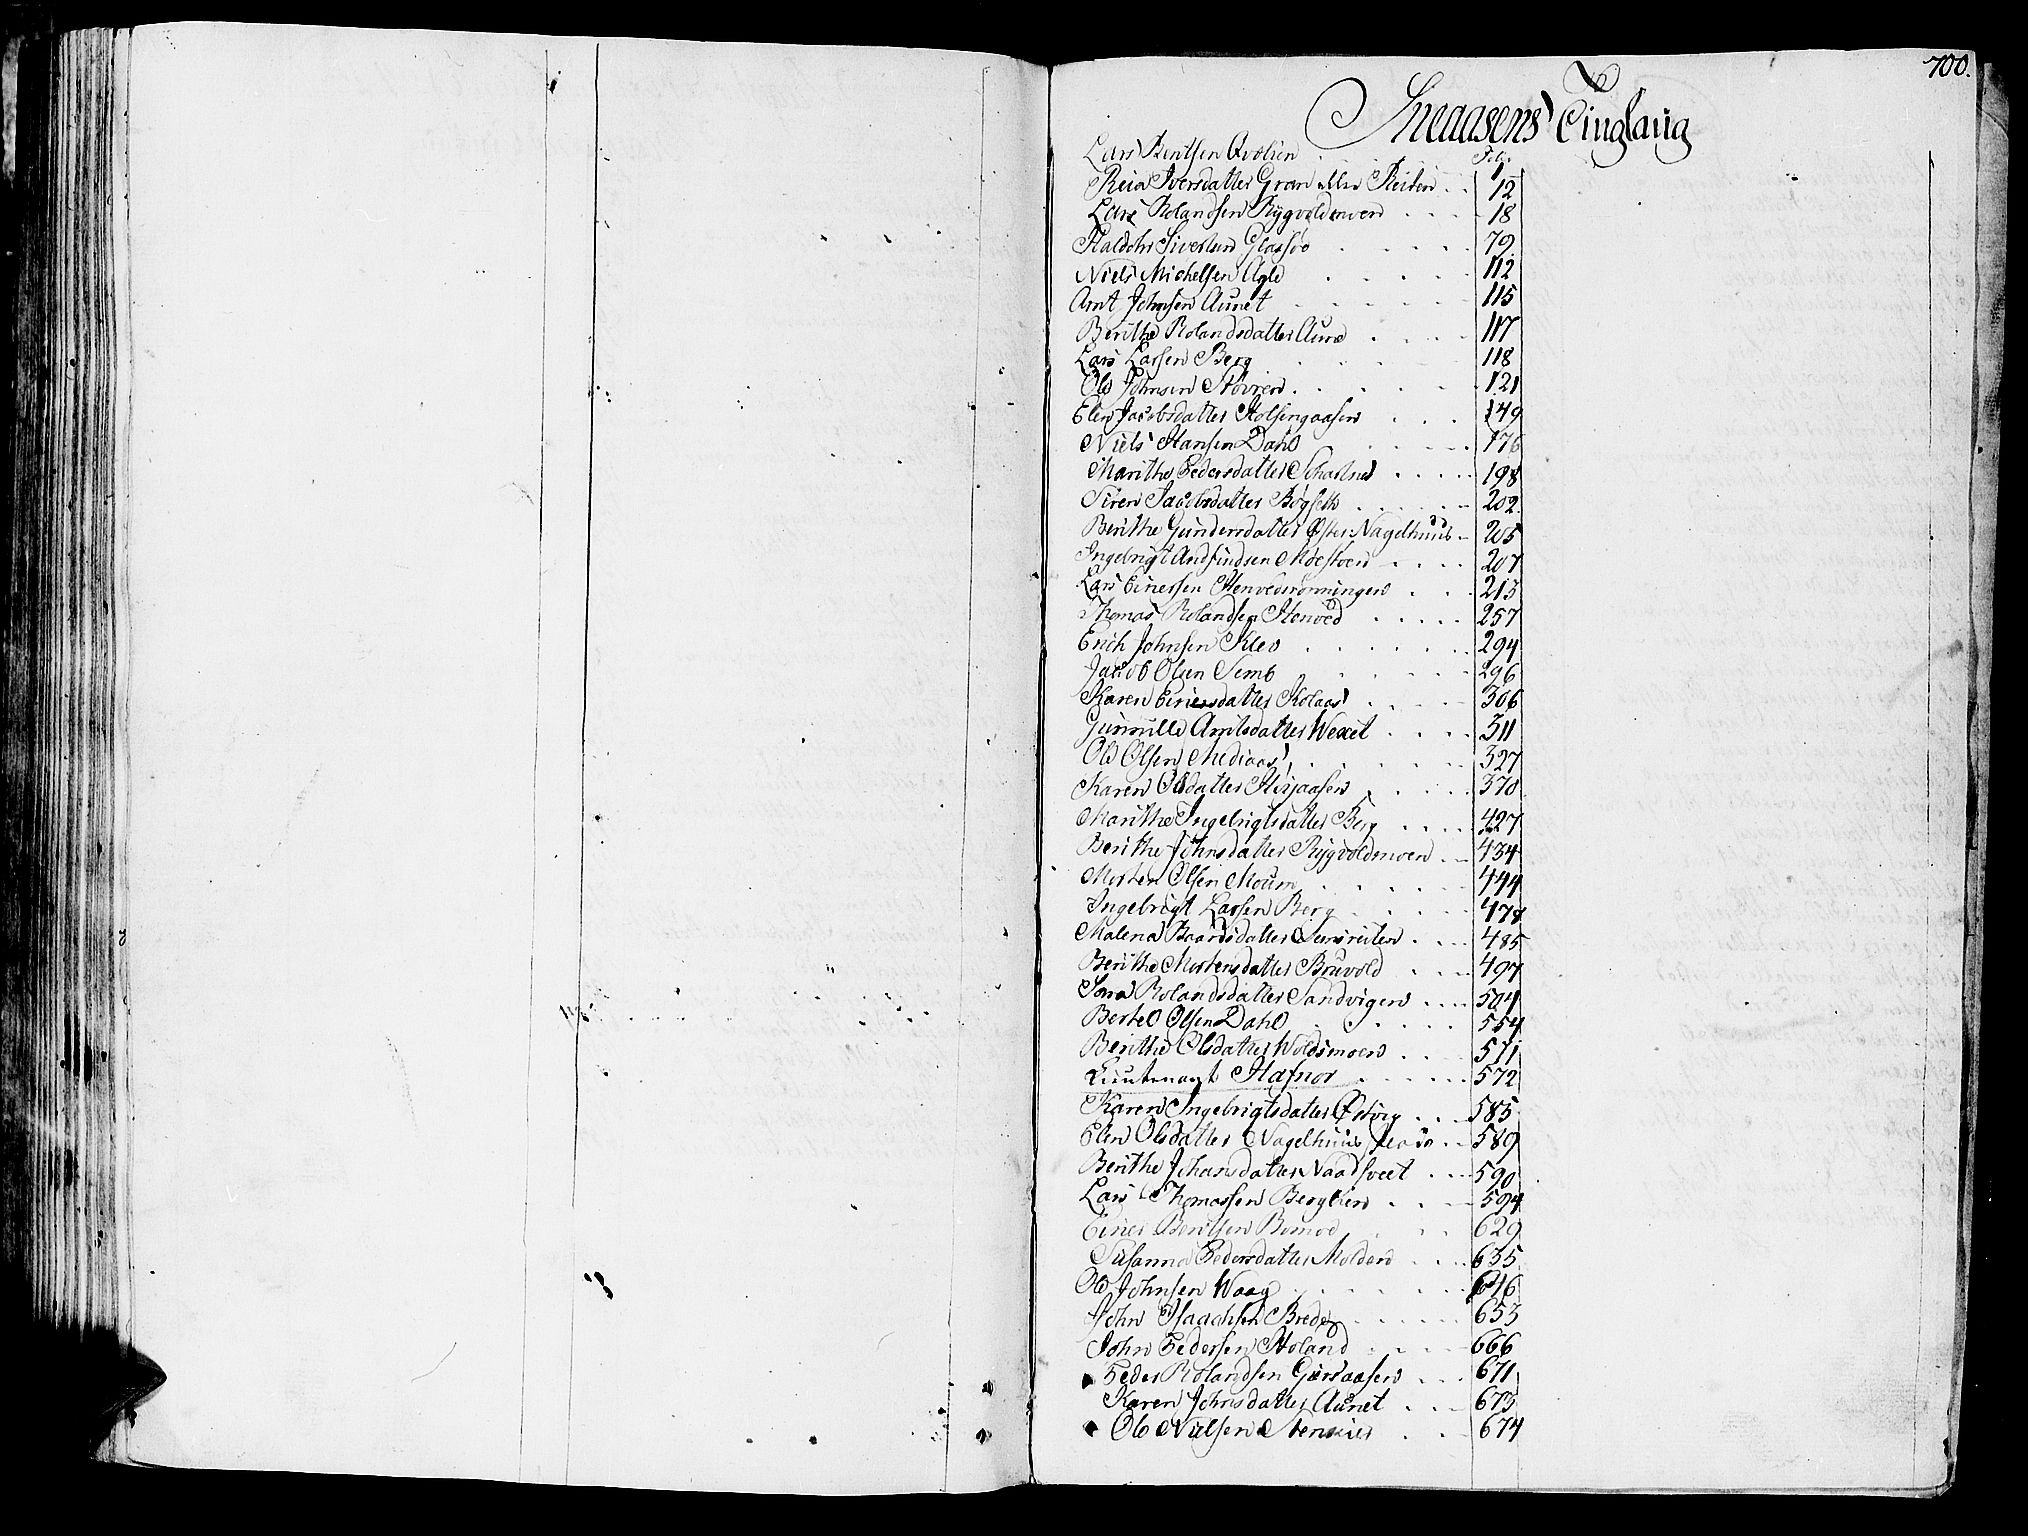 700.
Sneaasens Tinglaug
Folio
Lars Bentsen Qvelien 1
Iversdatter Gran eller Reiten 12
Lars Rolandsen Rygvoldmoen 18
Haldohr Sivertsen 79
Niels Michelsen Agle 112
Arnt Johnsen Aunet 115
Berithe Rolandsdatter Aune 117
Lars Larsen Berg 118
Ole Johnsen 121
Elen Jacobsdatter Holsingaasen 149
Niels Hansen Dahl 176
Marithe Pedersdatter 198
Siren Jacobsdatter Bøgseth 202
Berithe Gundersdatter Øster Nagelhuus 205
Ingebrigt Andfindsen Moestuen 207
Lars Einersen Stenvedrønningen 213
Thomas Rolandsen Stenved 257
Erich Johnsen Klev 294
Jacob Olsen Semb 296
Karen Einersdatter Holaas 306
Gunnille Arntsdatter Wexet 311
Ole Olsen Mediaas 327
Karen Olsdatter 370
Marithe Ingebrigtsdatter Berg 427
Berithe Johnsdatter Rygvoldmoen 434
Morten Olsen Moum 444
Ingebrigt Larsen Berg 478
Malena Baardsdatter Qvernreiten 485
Berithe Mortensdatter Bruvold 497
Sara Rolandsdatter Sandvigen 504
Bertel Olsen Dahl 554
Berithe Olsdatter Woldsmoen 571
Lieutenant Hafnor 572
Karen Ingebrigtsdatter Østvig 585
Elen Olsdatter Nagelhuus 589
Berithe Johansdatter 590
Lars Thomassen Berglien 594
Einer Bentsen Bomoe 629
Susanna Pedersdatter Molden 635
Ole Johnsen Waag 646
John Isaachsen Brede 653
John Pedersen Holand 666
Peder Rolandsen 671
Karen Johnsdatter Aunet 673
Ole Nielsen 674